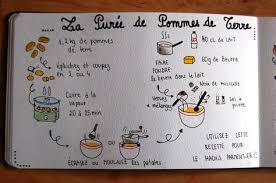 La Purée de Pommes de Terre
1,2 kg de pommes
de terre
épluchées et coupées
en 2 ou 4
Cuire à la
vapeur
20 à 25 min
ÉCRASEZ ou MOULINEZ les patates
80 cl de lait
60g de Beurre
FAIRE
FONDRE
le beurre dans le lait
Versez
et
mélangez
Noix de muscade
Sel +
poivre
UTILISEZ CETTE
RECETTE POUR
LE HACHIS PARMENTIER !!